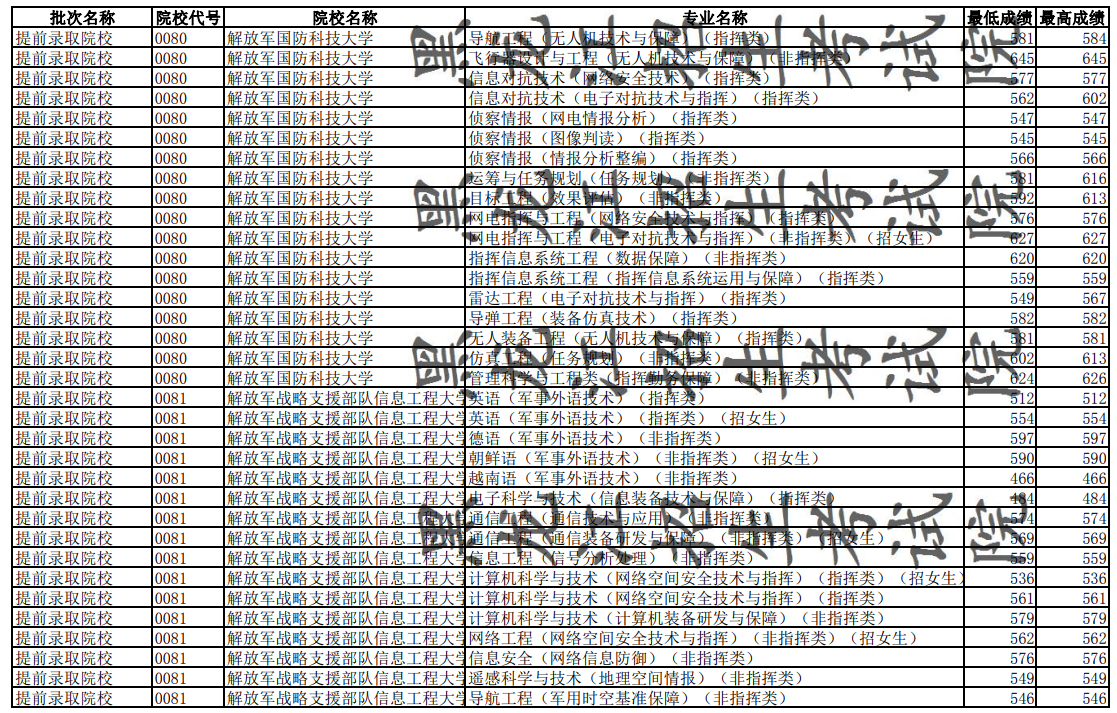 批次名称 院校代号 院校名称 专业名称 最低成绩 最高成绩
提前录取院校 0080 解放军国防科技大学 导航工程（无人机技术与保障）（指挥类） 581 584
提前录取院校 0080 解放军国防科技大学 飞行器设计与工程（无人机技术与保障）（非指挥类） 645 645
提前录取院校 0080 解放军国防科技大学 信息对抗技术（网络安全技术）（指挥类） 577 577
提前录取院校 0080 解放军国防科技大学 信息对抗技术（电子对抗技术与指挥）（指挥类） 562 602
提前录取院校 0080 解放军国防科技大学 侦察情报（网电情报分析）（指挥类） 547 547
提前录取院校 0080 解放军国防科技大学 侦察情报（图像判读）（指挥类） 545 545
提前录取院校 0080 解放军国防科技大学 侦察情报（情报分析整编）（指挥类） 566 566
提前录取院校 0080 解放军国防科技大学 运筹与任务规划（任务规划）（非指挥类） 581 616
提前录取院校 0080 解放军国防科技大学 目标工程（效果评估）（非指挥类） 592 613
提前录取院校 0080 解放军国防科技大学 网电指挥与工程（网络安全技术与指挥）（指挥类） 576 576
提前录取院校 0080 解放军国防科技大学 网电指挥与工程（电子对抗技术与指挥）（非指挥类）（招女生） 627 627
提前录取院校 0080 解放军国防科技大学 指挥信息系统工程（数据保障）（非指挥类） 620 620
提前录取院校 0080 解放军国防科技大学 指挥信息系统工程（指挥信息系统运用与保障）（指挥类） 559 559
提前录取院校 0080 解放军国防科技大学 雷达工程（电子对抗技术与指挥）（指挥类） 549 567
提前录取院校 0080 解放军国防科技大学 导弹工程（装备仿真技术）（指挥类） 582 582
提前录取院校 0080 解放军国防科技大学 无人装备工程（无人机技术与保障）（指挥类） 581 581
提前录取院校 0080 解放军国防科技大学 仿真工程（任务规划）（非指挥类） 602 613
提前录取院校 0080 解放军国防科技大学 管理科学与工程类（指挥勤务保障）（非指挥类） 624 626
提前录取院校 0081 解放军战略支援部队信息工程大学 英语（军事外语技术）（指挥类） 512 512
提前录取院校 0081 解放军战略支援部队信息工程大学 英语（军事外语技术）（指挥类）（招女生） 554 554
提前录取院校 0081 解放军战略支援部队信息工程大学 德语（军事外语技术）（非指挥类） 597 597
提前录取院校 0081 解放军战略支援部队信息工程大学 朝鲜语（军事外语技术）（非指挥类）（招女生） 590 590
提前录取院校 0081 解放军战略支援部队信息工程大学 越南语（军事外语技术）（非指挥类） 466 466
提前录取院校 0081 解放军战略支援部队信息工程大学 电子科学与技术（信息装备技术与保障）（指挥类） 484 484
提前录取院校 0081 解放军战略支援部队信息工程大学 通信工程（通信技术与应用）（非指挥类） 574 574
提前录取院校 0081 解放军战略支援部队信息工程大学 通信工程（通信装备研发与保障）（非指挥类）（招女生） 569 569
提前录取院校 0081 解放军战略支援部队信息工程大学 信息工程（信号分析处理）（非指挥类） 559 559
提前录取院校 0081 解放军战略支援部队信息工程大学 计算机科学与技术（网络空间安全技术与指挥）（指挥类）（招女生） 536 536
提前录取院校 0081 解放军战略支援部队信息工程大学 计算机科学与技术（网络空间安全技术与指挥）（指挥类） 561 561
提前录取院校 0081 解放军战略支援部队信息工程大学 计算机科学与技术（计算机装备研发与保障）（非指挥类） 579 579
提前录取院校 0081 解放军战略支援部队信息工程大学 网络工程（网络空间安全技术与指挥）（非指挥类）（招女生） 562 562
提前录取院校 0081 解放军战略支援部队信息工程大学 信息安全（网络信息防御）（非指挥类） 576 576
提前录取院校 0081 解放军战略支援部队信息工程大学 遥感科学与技术（地理空间情报）（非指挥类） 549 549
提前录取院校 0081 解放军战略支援部队信息工程大学 导航工程（军用时空基准保障）（非指挥类） 546 546
黑龙江招生考试院
黑龙江招生考试院
黑龙江招生考试院
黑龙江招生考试院